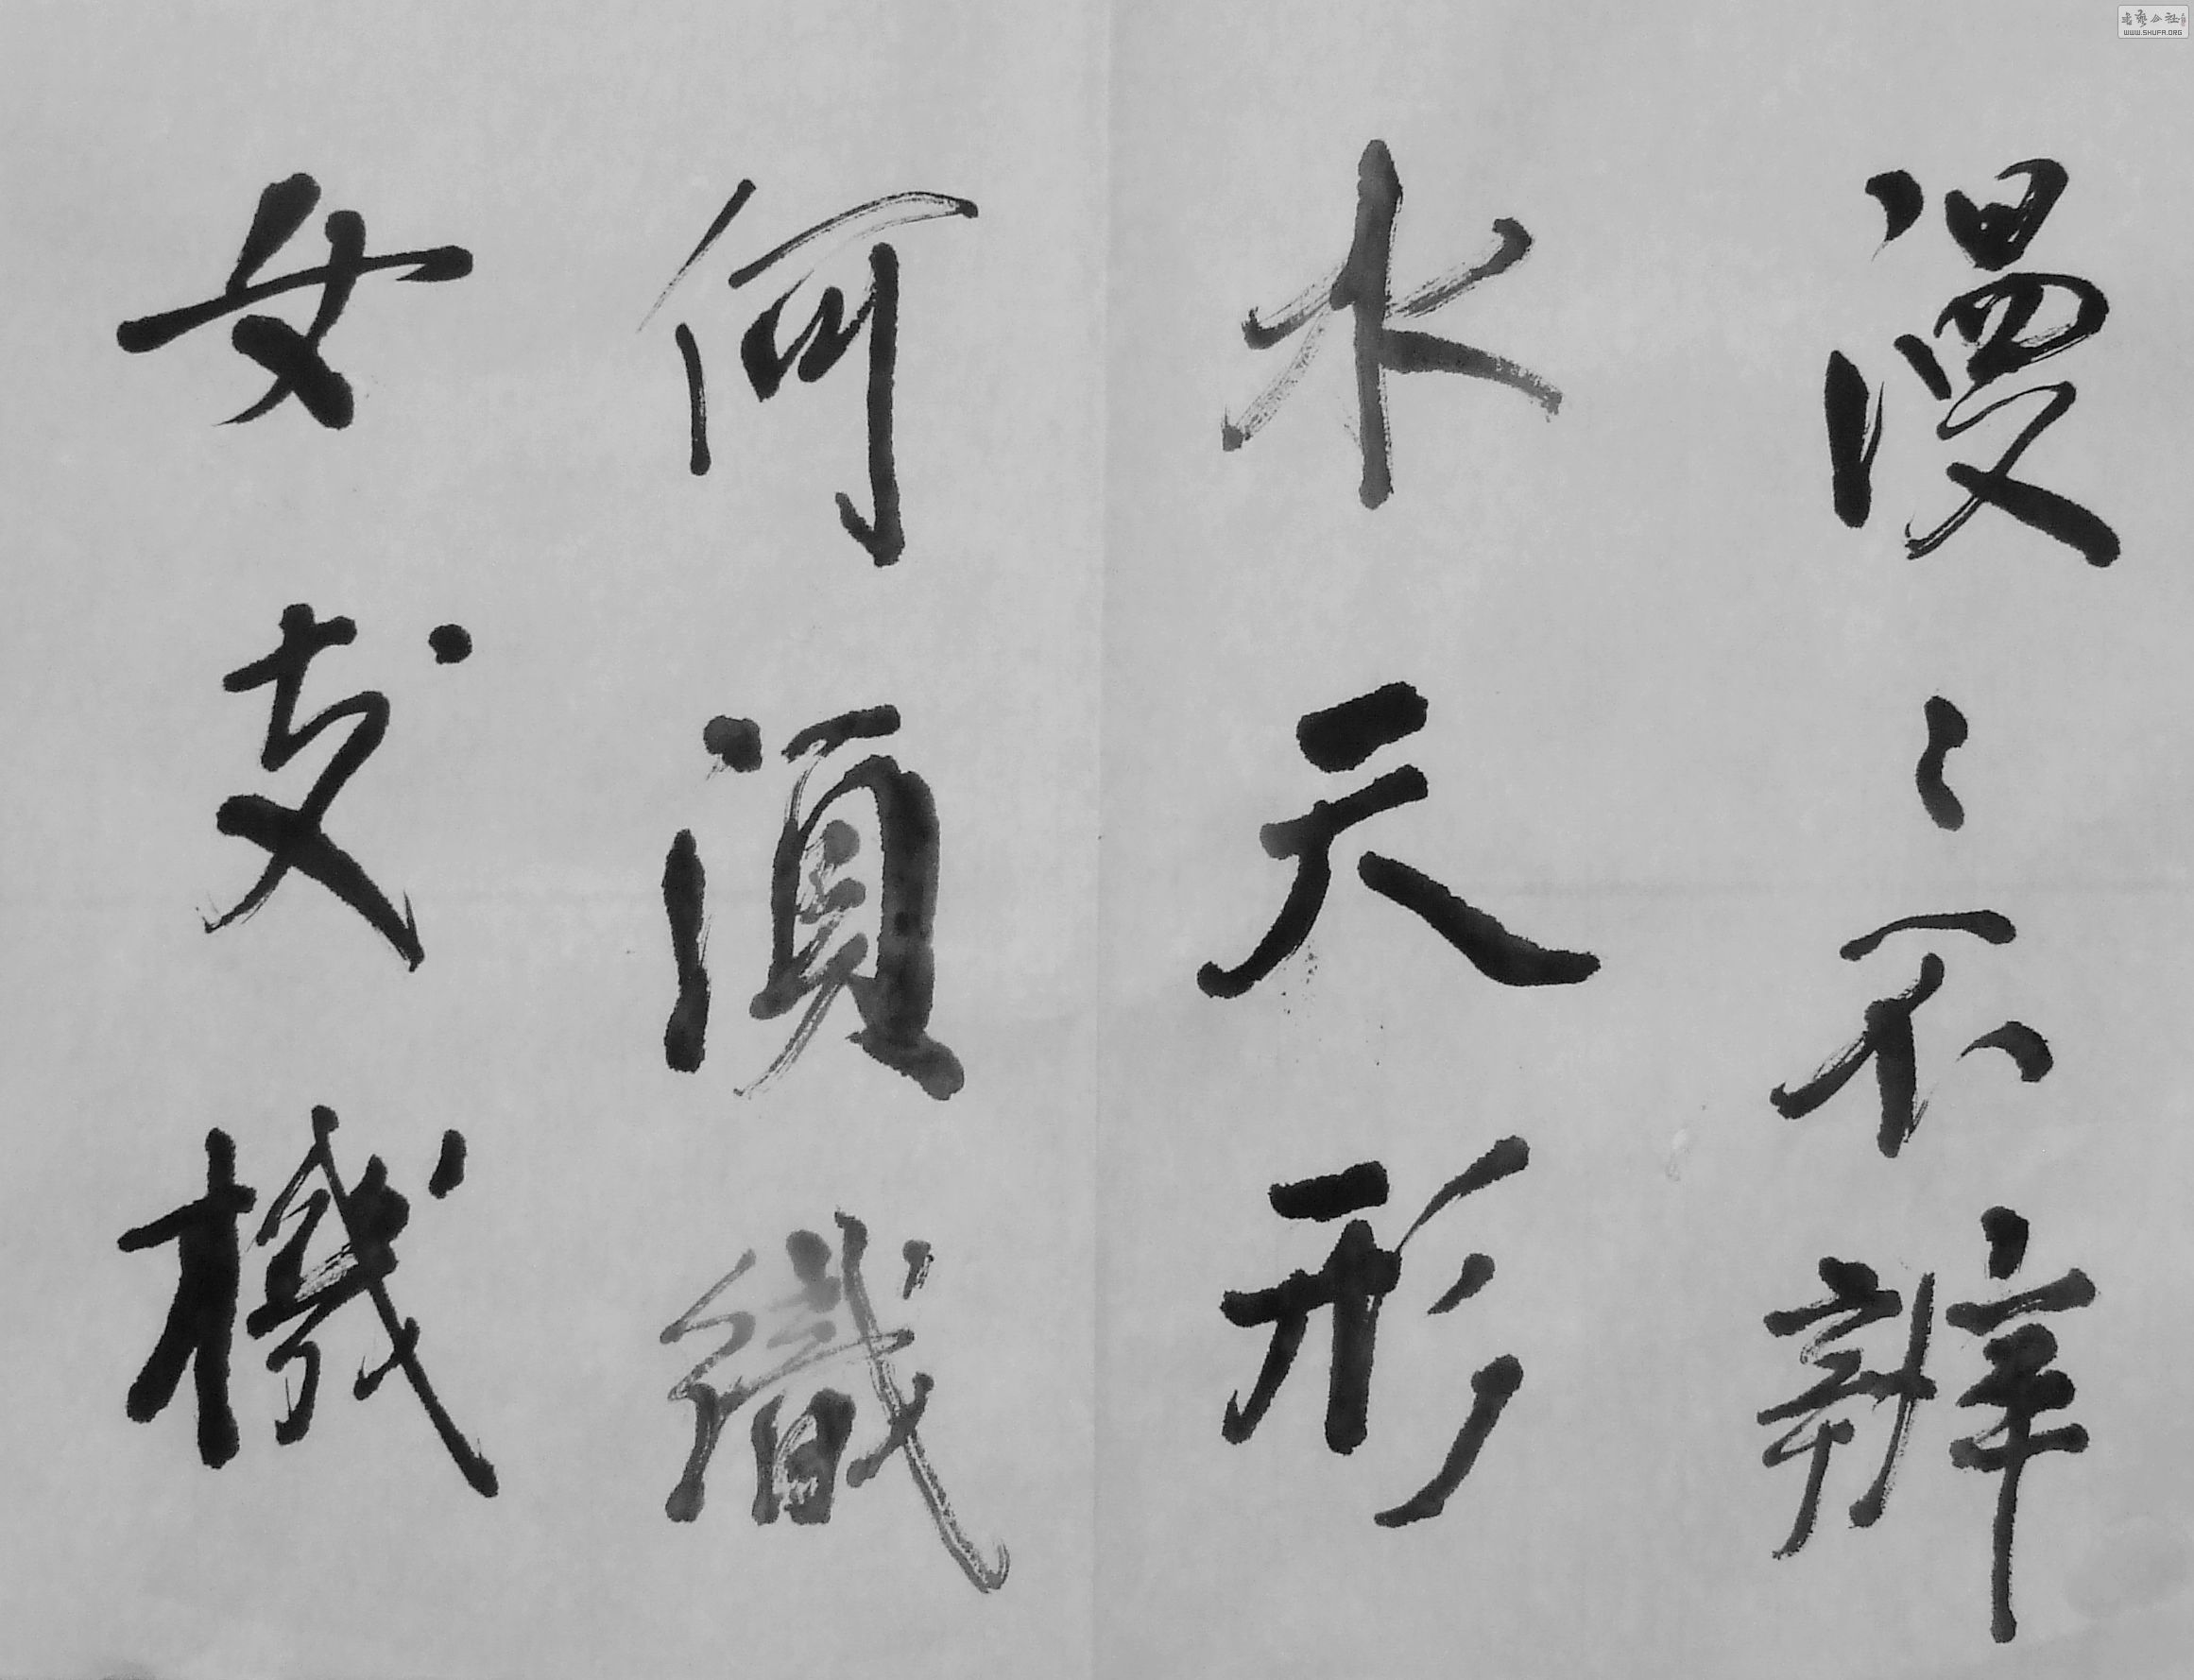 漫〻不辨
水天形
何須織
女支機
書藝公社
WWW.SHUFA.ORG